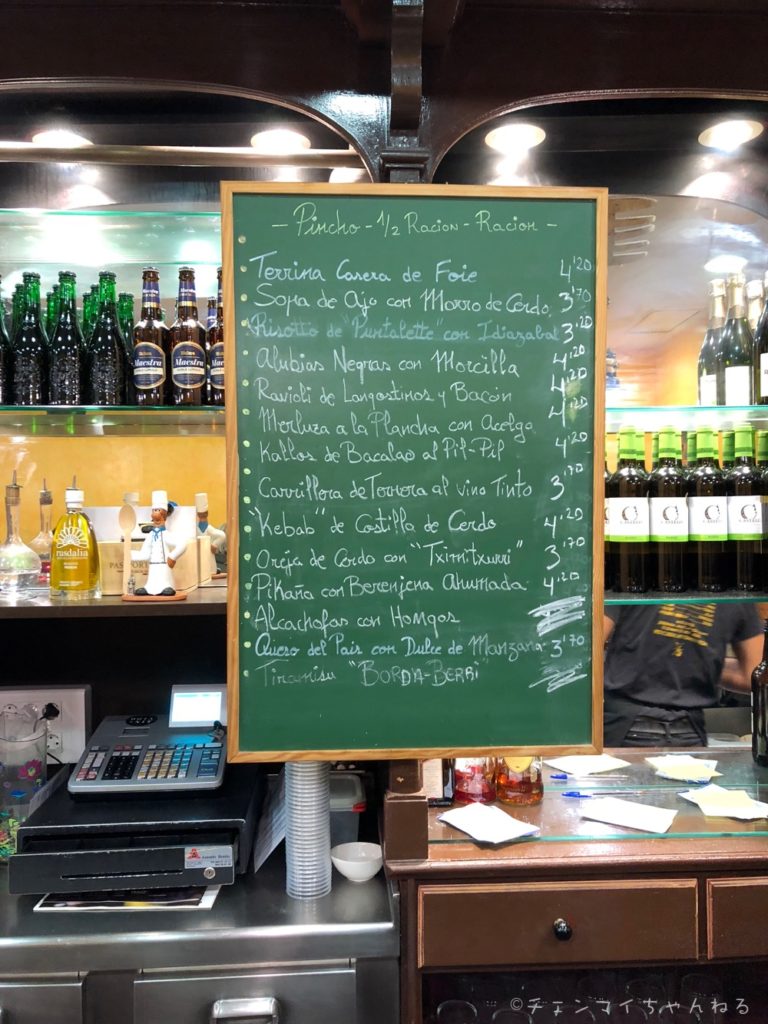 - Pincho - 1/2 Racion - Racion -
Terrina Casera de Foie 4'20
Sopa de Ajo con Morro de Cerdo 3'70
Risotto de "Puntalette" con Idiazabal 3'20
Alubias Negras con Morcilla 4'20
Ravioli de Langostinos y Bacón 4'20
Merluza a la Plancha con Acelga 4'20
Kallos de Bacalao al Pil-Pil 4'20
Carrillera de Ternera al vino Tinto 3'70
"Kebab" de Costilla de Cerdo 4'20
Oreja de Cerdo con "Tximitxurri" 3'70
Pikaña con Berenjena Ahumada 4'20
Alcachofas con Hongos
Queso del Pais con Dulce de Manzana 3'70
Tiramisu "BORDA-BERRI"
Maestra
Maestra
rusdalia
©チェンコイちゃんねる